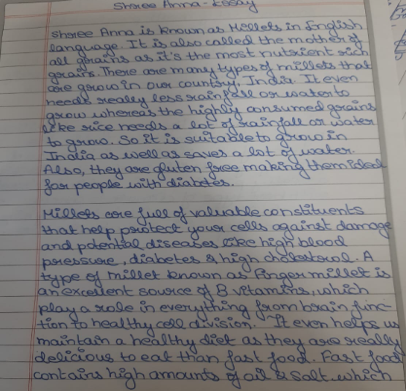 Shree Anna - Essay
Shree Anna is known as Millets in English
language. It is also called the mother of
all grains as it's the most nutrient rich
grains. There are many types of millets that
are grow in our country, India. It even
needs really less rainfall or water to
grow whereas the highly consumed grains
like rice needs a lot of rainfall or water
to grow. So it is suitable to grow in
India as well as saves a lot of water.
Also, they are gluten free making them ideal
for people with diabetes.
Millets are full of valuable constituents
that help protect your cells against damage
and potential diseases like high blood
pressure, diabetes & high cholestrol. A
type of millet known as Finger millet is
an excellent source of B vitamins, which
play a role in everything from brain func
tion to healthy cell division. It even helps us
maintain a healthy diet as they are really
delicious to eat than fast food. Fast food
contains high amounts of oil & salt which